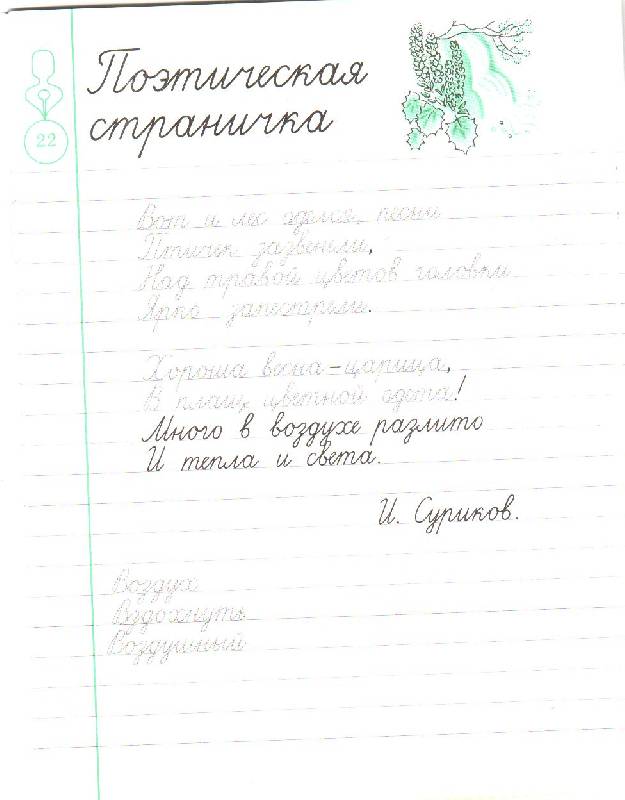 Поэтическая
страничка
22
Вот и лес оделся, песни
Птичек зазвенели,
Над травой цветов головки
Ярко запестрели.
Хороша весна-царица,
В плащ цветной одета!
Много в воздухе разлито
И тепла и света.
И. Суриков.
Воздух
Вздохнуть
Воздушный